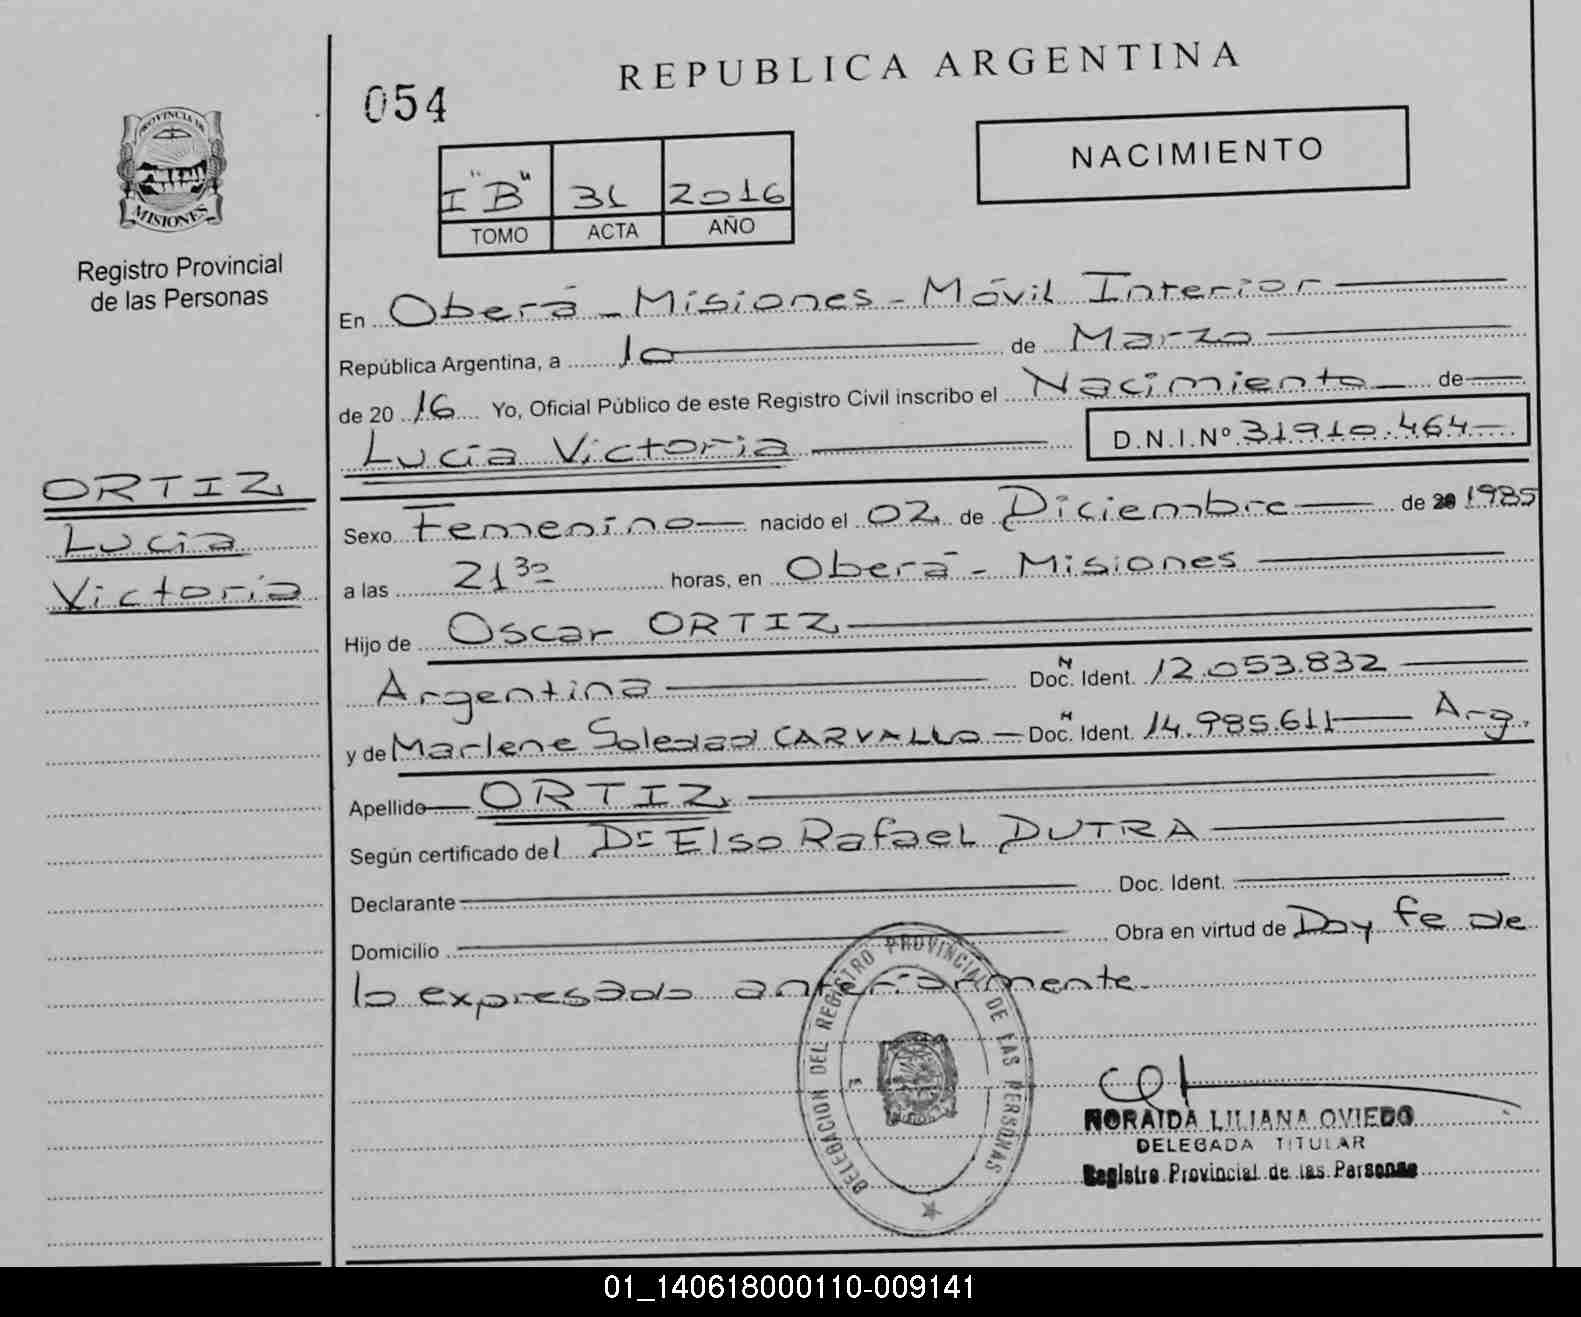 REPUBLICA ARGENTINA
054
NACIMIENTO
I "B" 31 2016
TOMO ACTA AÑO
PROVINCIA DE
MISIONES
Registro Provincial
de las Personas
En Oberá - Misiones - Móvil Interior
República Argentina, a 10 de Marzo
de 20 16 Yo, Oficial Público de este Registro Civil inscribo el Nacimiento de
Lucía Victoria D.N.I.Nº 31.910.464
ORTIZ
Lucía
Victoria
Sexo Femenino nacido el 02 de Diciembre de 20 1985
a las 21 30 horas, en Oberá - Misiones
Hijo de Oscar ORTIZ
Argentina Doc. N Ident. 12.053.832
y de Marlene Soledad CARVALLO - Doc. N Ident. 14.985.611 Arg.
Apellido ORTIZ
Según certificado del Dr Elso Rafael DUTRA
Declarante Doc. Ident.
Domicilio Obra en virtud de Doy fe de
lo expresado anteriormente.
DELEGACION DEL REGISTRO PROVINCIAL DE LAS PERSONAS
NORAIDA LILIANA OVIEDO
DELEGADA TITULAR
Registro Provincial de las Personas
01_140618000110-009141